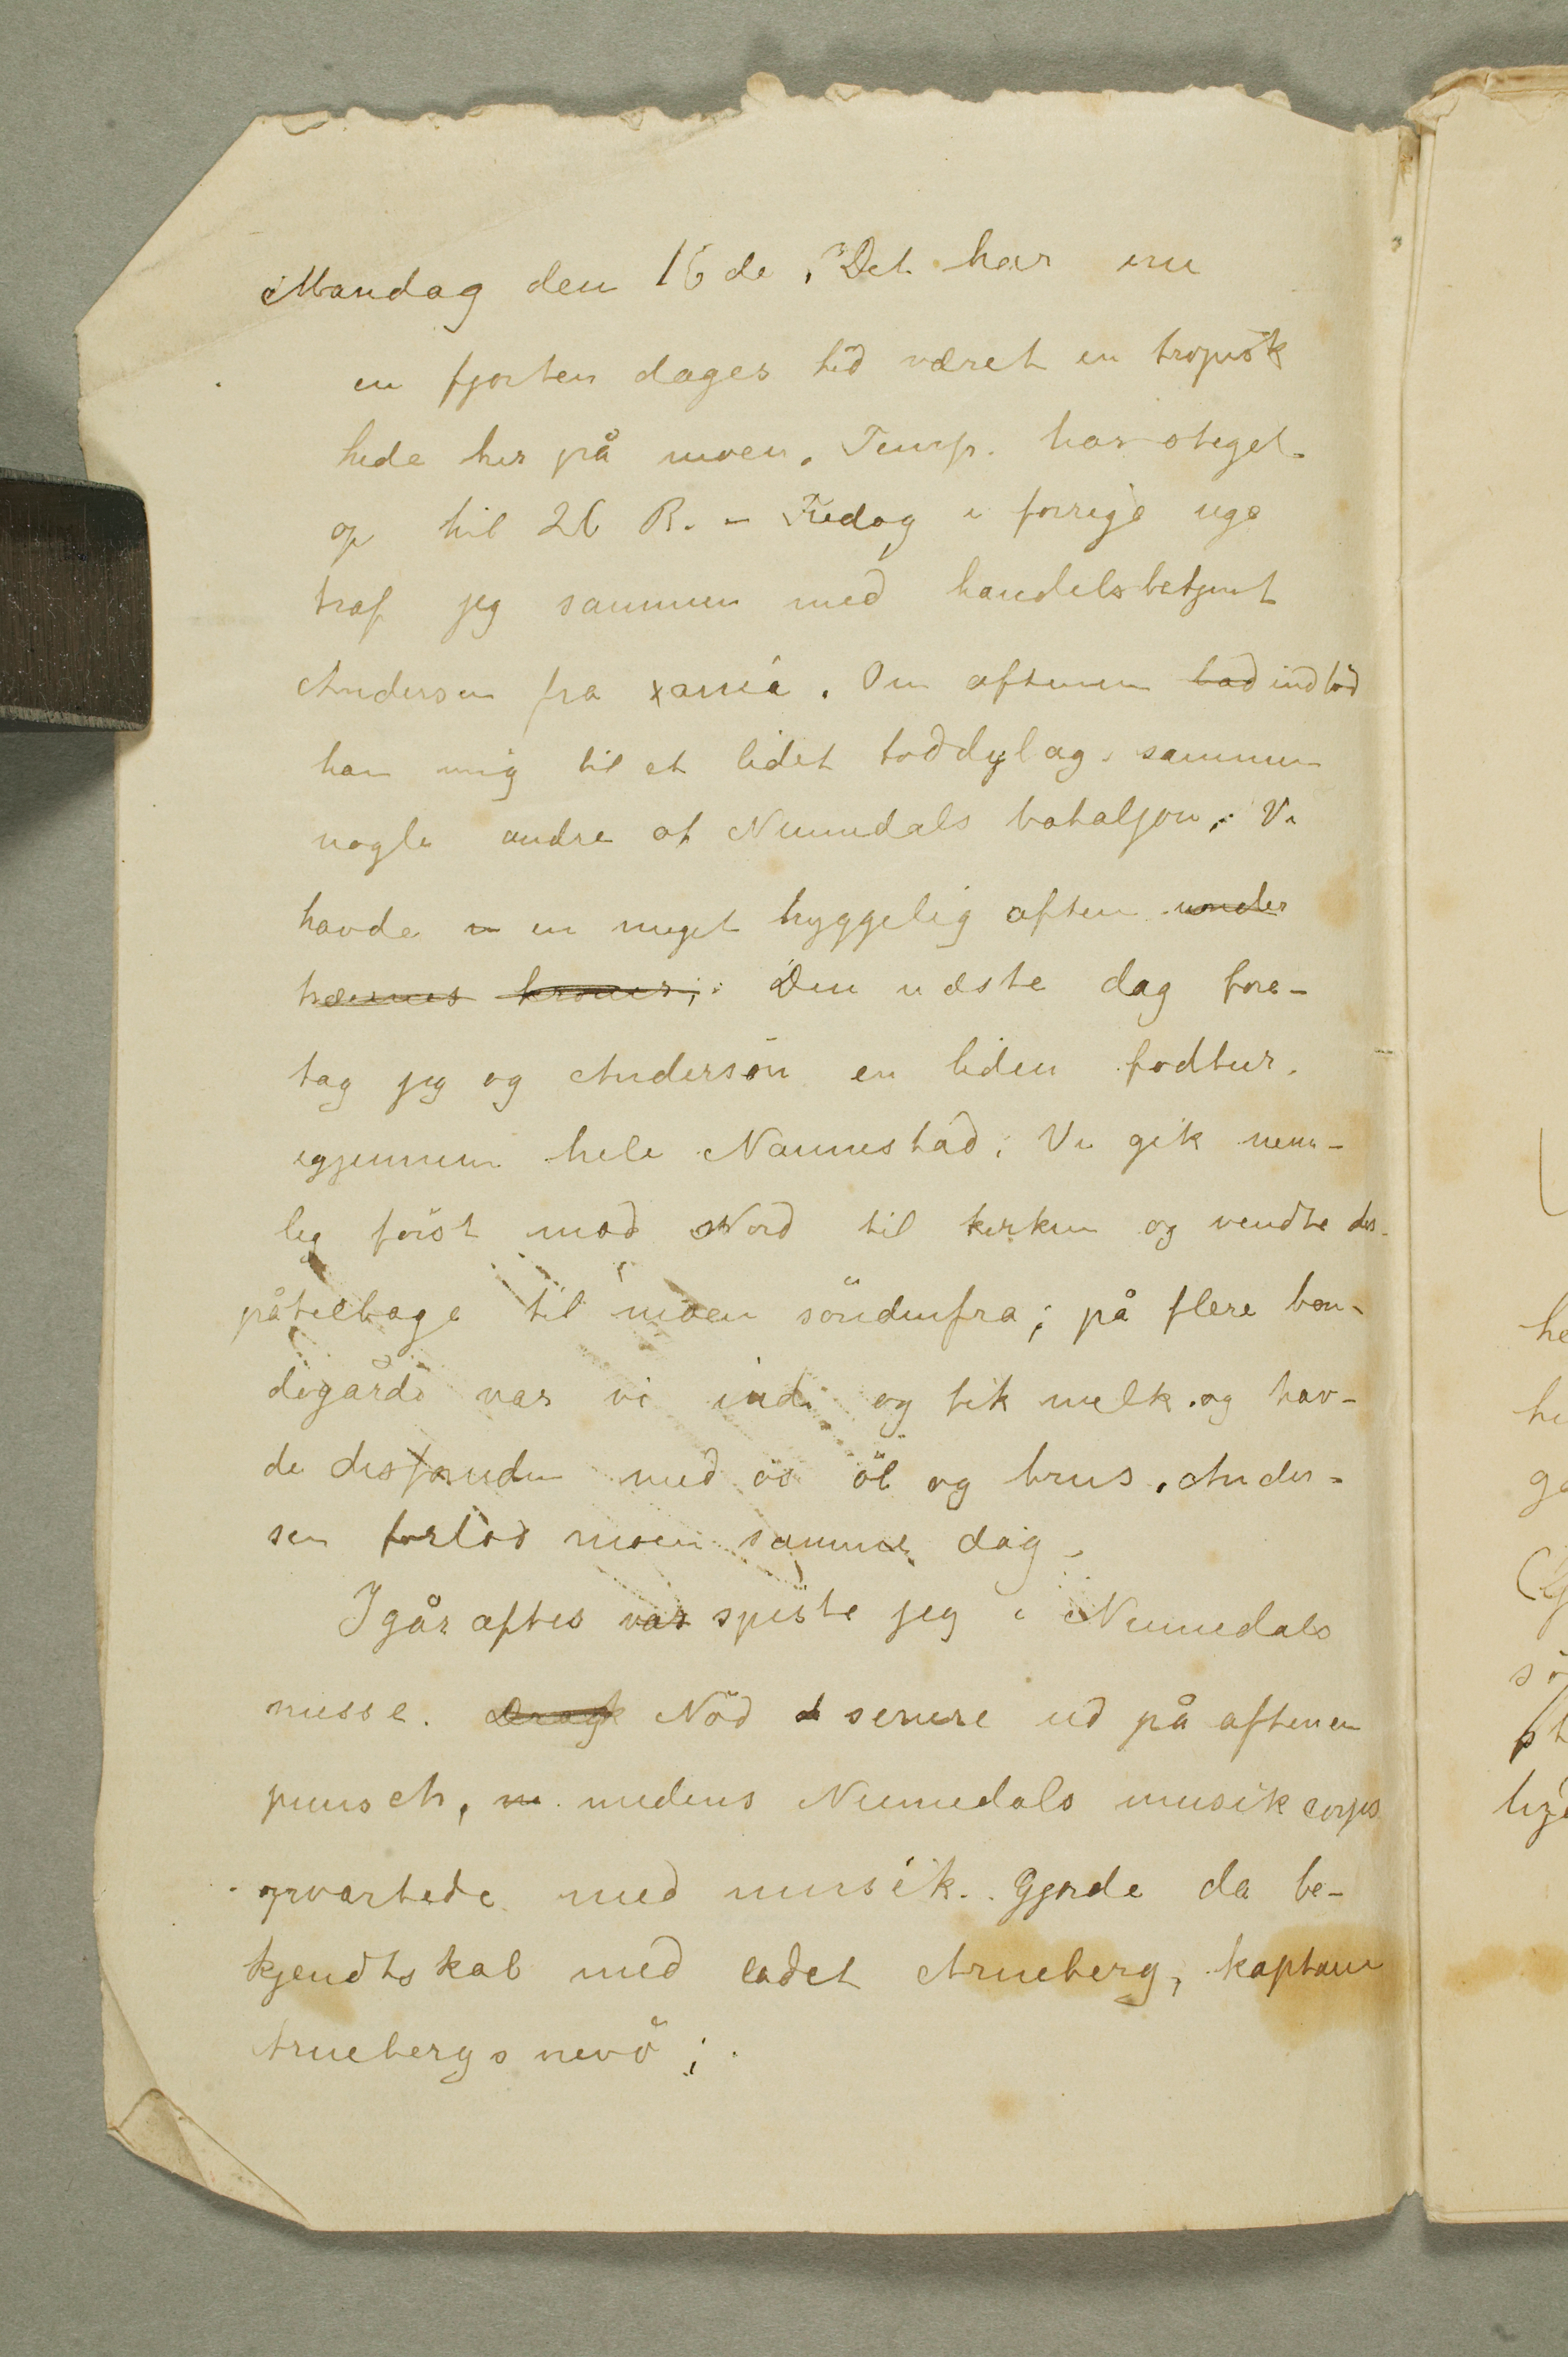 Mandag den 16de. Det har nu
en fjorten dages tid været en tropisk
hede her på moen. Temp. har steget
op til 26 R. - Fredag i forrige uge
traf jeg sammen med handelsbetjent
Andersen fra xania. Om aftenen bad indbød
han mig til et lidet toddylag sammen
nogle andre af Numedals bataljon. Vi
havde en meget hyggelig aften under
træernes kroner; Den næste dag fore-
tag jeg og Andersen en liden fodtur.
igjennem hele Nannestad; Vi gik nem-
lig først mod Nord til kirken og vendte der-
på tilbage til moen søndenfra; på flere bon-
degårde var vi ind og fik melk og hav-
de desforuden med os öl og brus. Ander-
sen forlod moen samme dag.
Igår aftes var spiste jeg i Numedals
messe. Drak Nød senere ud på aftenen
punsch, m medens Numedals musikcorps
opvartede med musik. Gjorde da be-
kjendtskab med cadet Arneberg, kaptain
Arnebergs nevö;
he